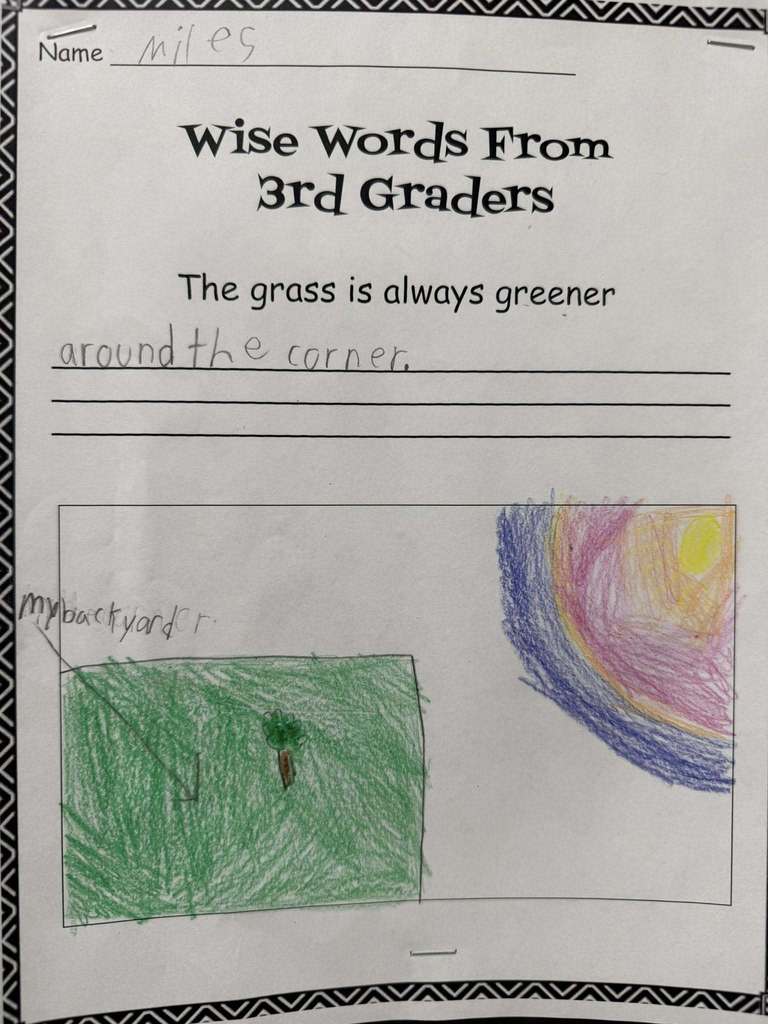 Name Miles
Wise Words From
3rd Graders
The grass is always greener
around the corner.
my backyarder.